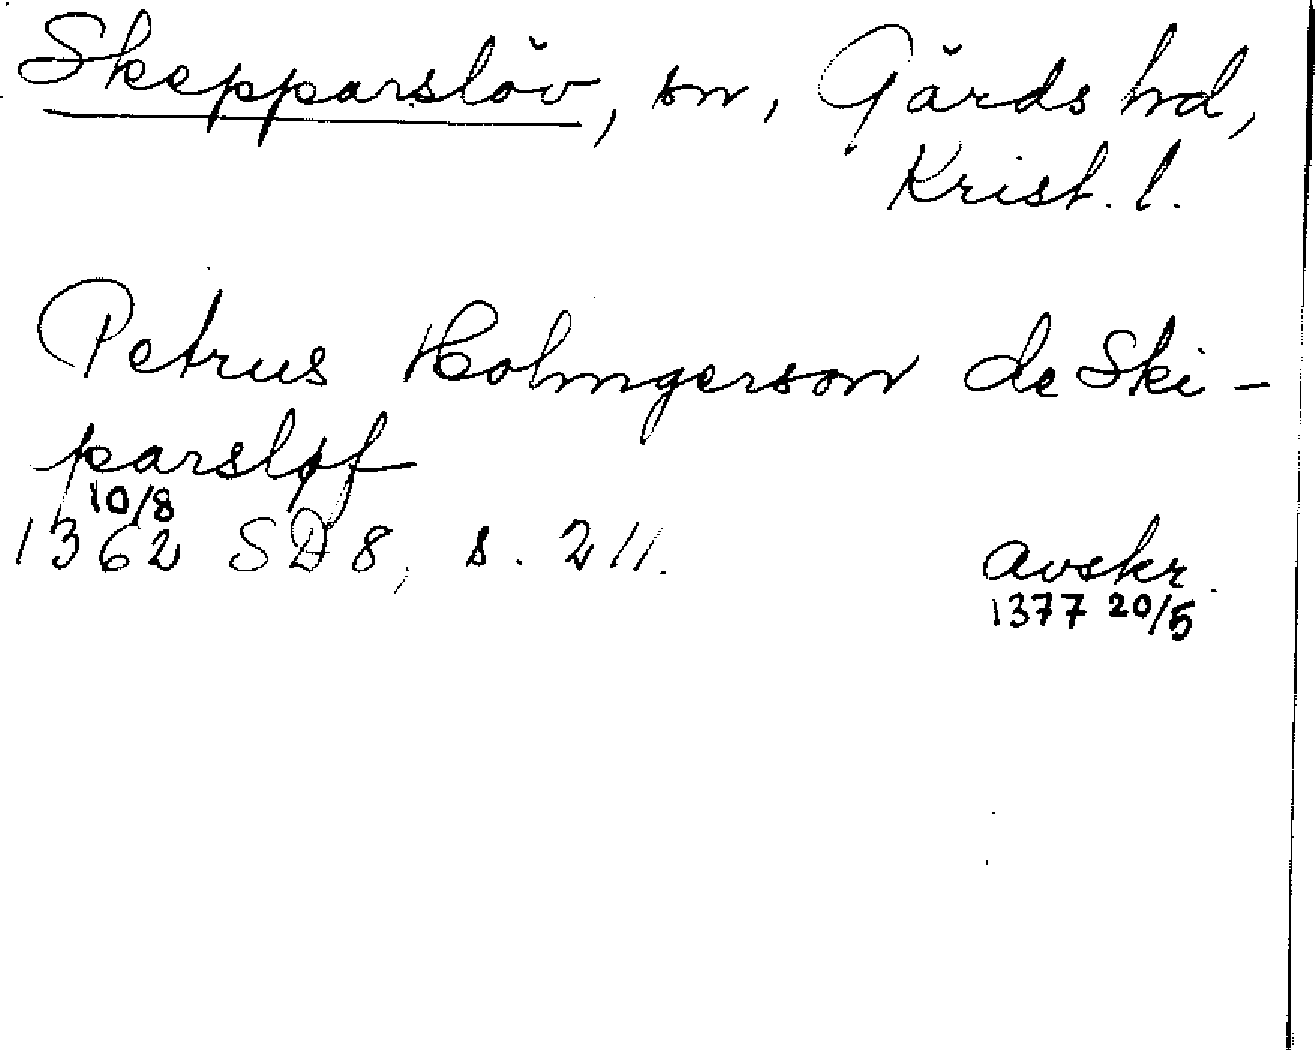 Skepparslöv, sn, Gärds hd,
Krist. l.
Petrus Holmgerson de Ski-
parsløf
10/8
1362 SD 8, s. 211.
Avskr.
1377 20/5